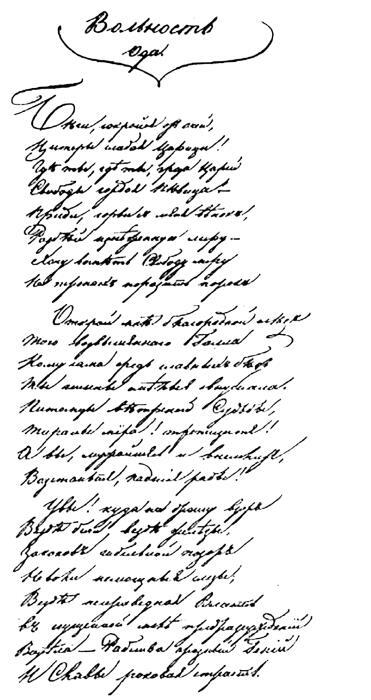 Вольность
Ода.
Бѣги, сокройся отъ очей,
Цитеры слабая Царица!
Гдѣ ты, гдѣ ты, гроза Царей
Свободы гордая пѣвица? —
Приди, сорви съ меня вѣнокъ,
Разбей изнѣженную лиру —
Хочу воспѣть Свободу міру
На тронахъ поразить порокъ
Открой мнѣ благородный слѣдъ
Того возвышеннаго Галла
Кому сама средь славныхъ бѣдъ
Ты гимны смѣлые внушала.
Питомцы вѣтреной Судьбы,
Тираны міра! трепещите!
А вы, мужайтесь и внемлите,
Возстаньте, падшіе рабы!
Увы! куда ни брошу взоръ
Вездѣ бичи, вездѣ желѣзы,
Законовъ гибельный позоръ
Неволи немощныя слезы;
Вездѣ неправедная Власть
Въ сгущенной мглѣ предразсужденій
Возсѣла — Рабства грозный Геній
И Славы роковая страсть.